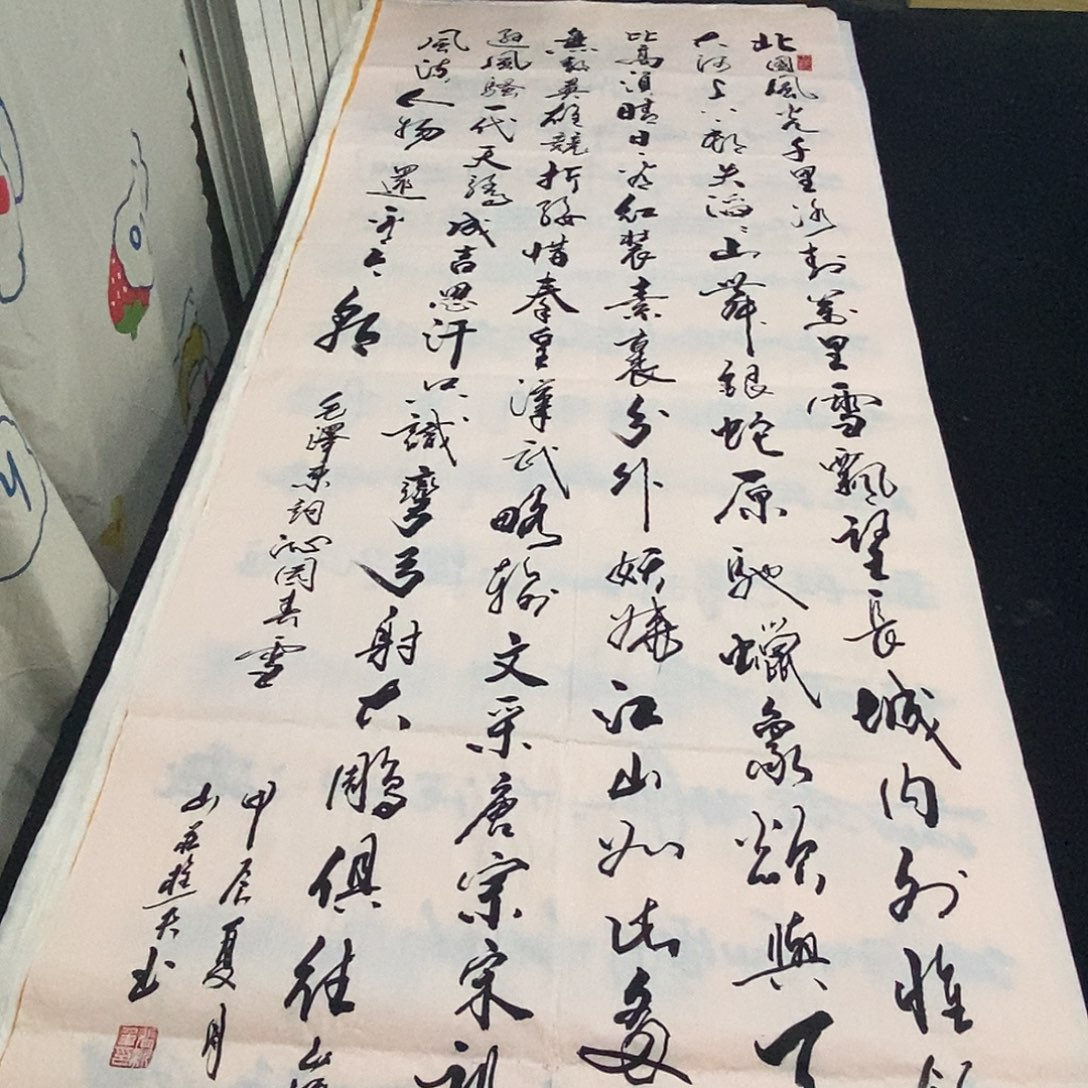 北國風光千里冰封萬里雪飄望長城内外惟
大河上下頓失滔〻山舞銀蛇原馳蠟象欲與天
比高須晴日看紅裝素裹分外妖嬈江山如此多
無數英雄競折腰惜秦皇漢武略輸文采唐宗宋
遜風騷一代天驕成吉思汗只識彎弓射大鵰俱往
風流人物還看今朝
毛澤東詞沁园春雪
甲辰夏月
山
书